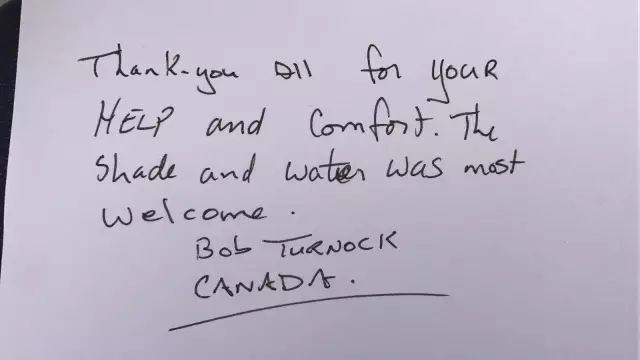 Thank-you All for your
HELP and Comfort. The
Shade and water was most
welcome.
Bob TURNOCK
CANADA.